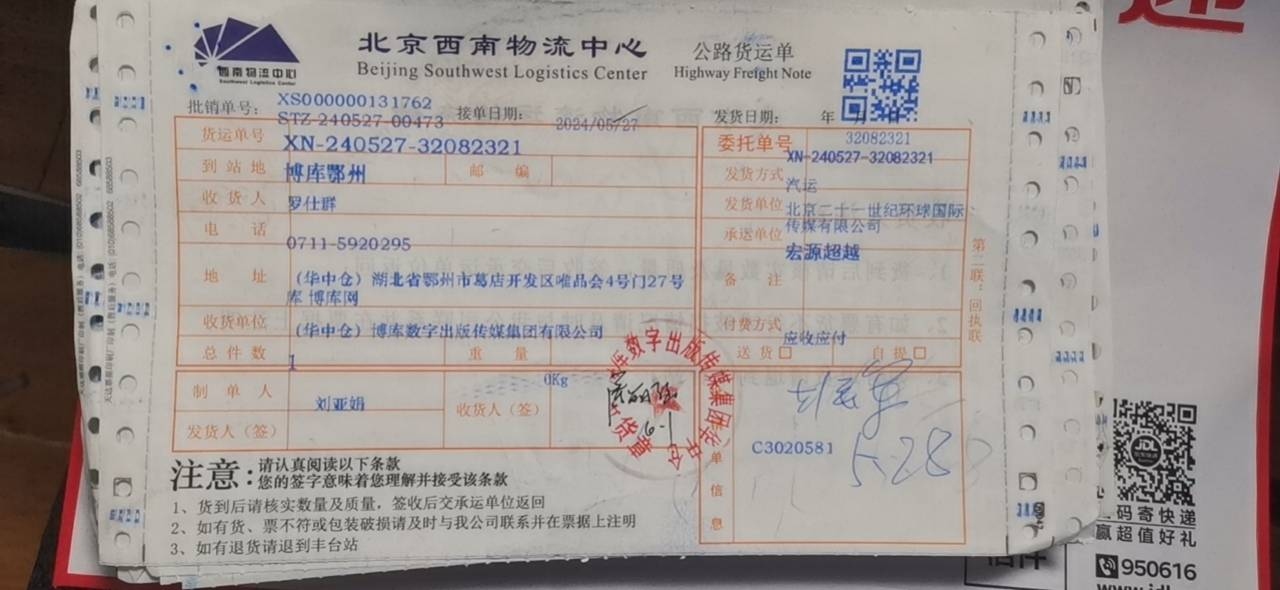 北京西南物流中心
Beijing Southwest Logistics Center
公路货运单
Highway Freight Note
西南物流中心
Southwest Logistics Center
批销单号：
XS000000131762
STZ-240527-00473
接单日期：
2024/05/27
发货日期： 年
货运单号 XN-240527-32082321
委托单号 32082321
XN-240527-32082321
到站地 博库鄂州 邮编
发货方式 汽运
收货人 罗仕群
发货单位 北京二十一世纪环球国际
传媒有限公司
电话 0711-5920295
承送单位 宏源超越
地址 （华中仓）湖北省鄂州市葛店开发区唯品会4号门27号
库 博库网
备注
收货单位 （华中仓）博库数字出版传媒集团有限公司
付费方式 应收应付
总件数 1 重量 0Kg
送货口 自提口
制单人 刘亚娟
收货人（签）
发货人（签）
6-1
数字出版传媒集团
单信息
C3020581
5-28
第二联：回执联
注意：
请认真阅读以下条款
您的签字意味着您理解并接受该条款
1、货到后请核实数量及质量，签收后交承运单位返回
2、如有货、票不符或包装破损请及时与我公司联系并在票据上注明
3、如有退货请退到丰台站
JD
码寄快递
赢超值好礼
950616